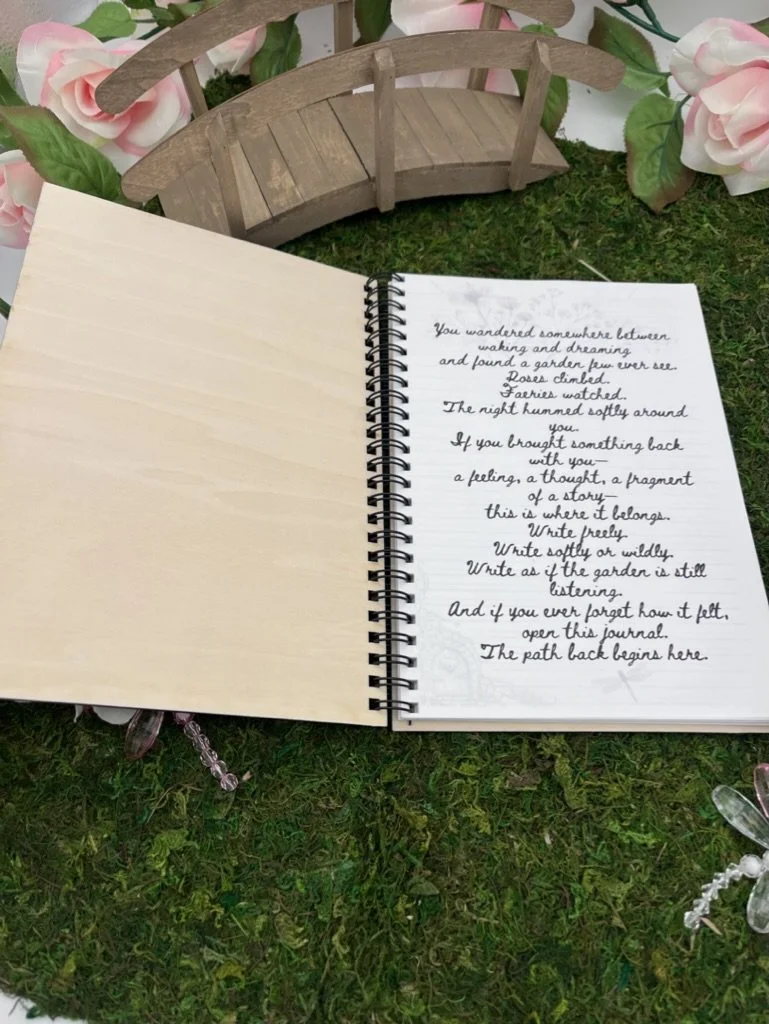 You wandered somewhere between
waking and dreaming
and found a garden few ever see.
Roses climbed.
Faeries watched.
The night hummed softly around
you.
If you brought something back
with you—
a feeling, a thought, a fragment
of a story—
this is where it belongs.
Write freely.
Write softly or wildly.
Write as if the garden is still
listening.
And if you ever forget how it felt,
open this journal.
The path back begins here.